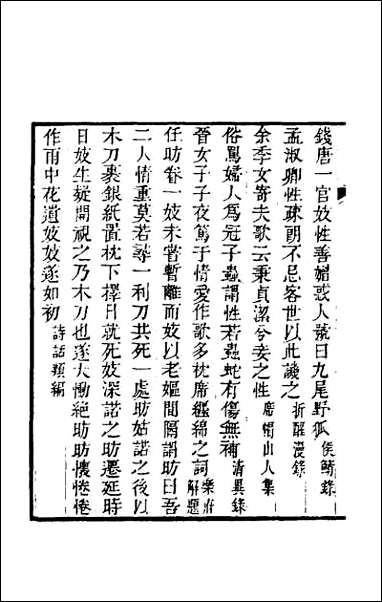 錢唐一官妓性善媚惑人號曰九尾野狐侯鯖錄
孟淑卿性疎朗不忌客世以此譏之折醒漫錄
余季女寄夫歌云秉貞潔兮妾之性席帽山人集
俗罵婦人爲冠子蟲謂性若蟲蛇有傷無補清異錄
晉女子子夜篤于情愛作歌多枕席纏綿之詞樂府解題
任昉眷一妓未嘗暫離而妓以老嫗間隔謂昉曰吾
二人情重莫若尋一利刀共死一處昉姑諾之後以
木刀裹銀紙置枕下擇日就死妓深諾之昉遷延時
日妓生疑開視之乃木刀也遂大慟絕昉昉懷惓惓
作雨中花遺妓妓遂如初詩話類編